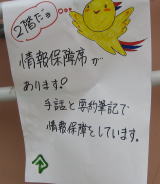 2階だョ...
情報保障席が
あります!
手話と要約筆記で
情報保障をしています。